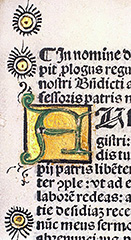 In nomine d
pit ꝓlogus regu
nostri Bn̄dicti a
fessoris patris n
A
gistri:
dis tui
pii patris libēte
ter ꝯple: vt ad e
laborē redeas: a
tie desidiaz rece
nūc meus sermo